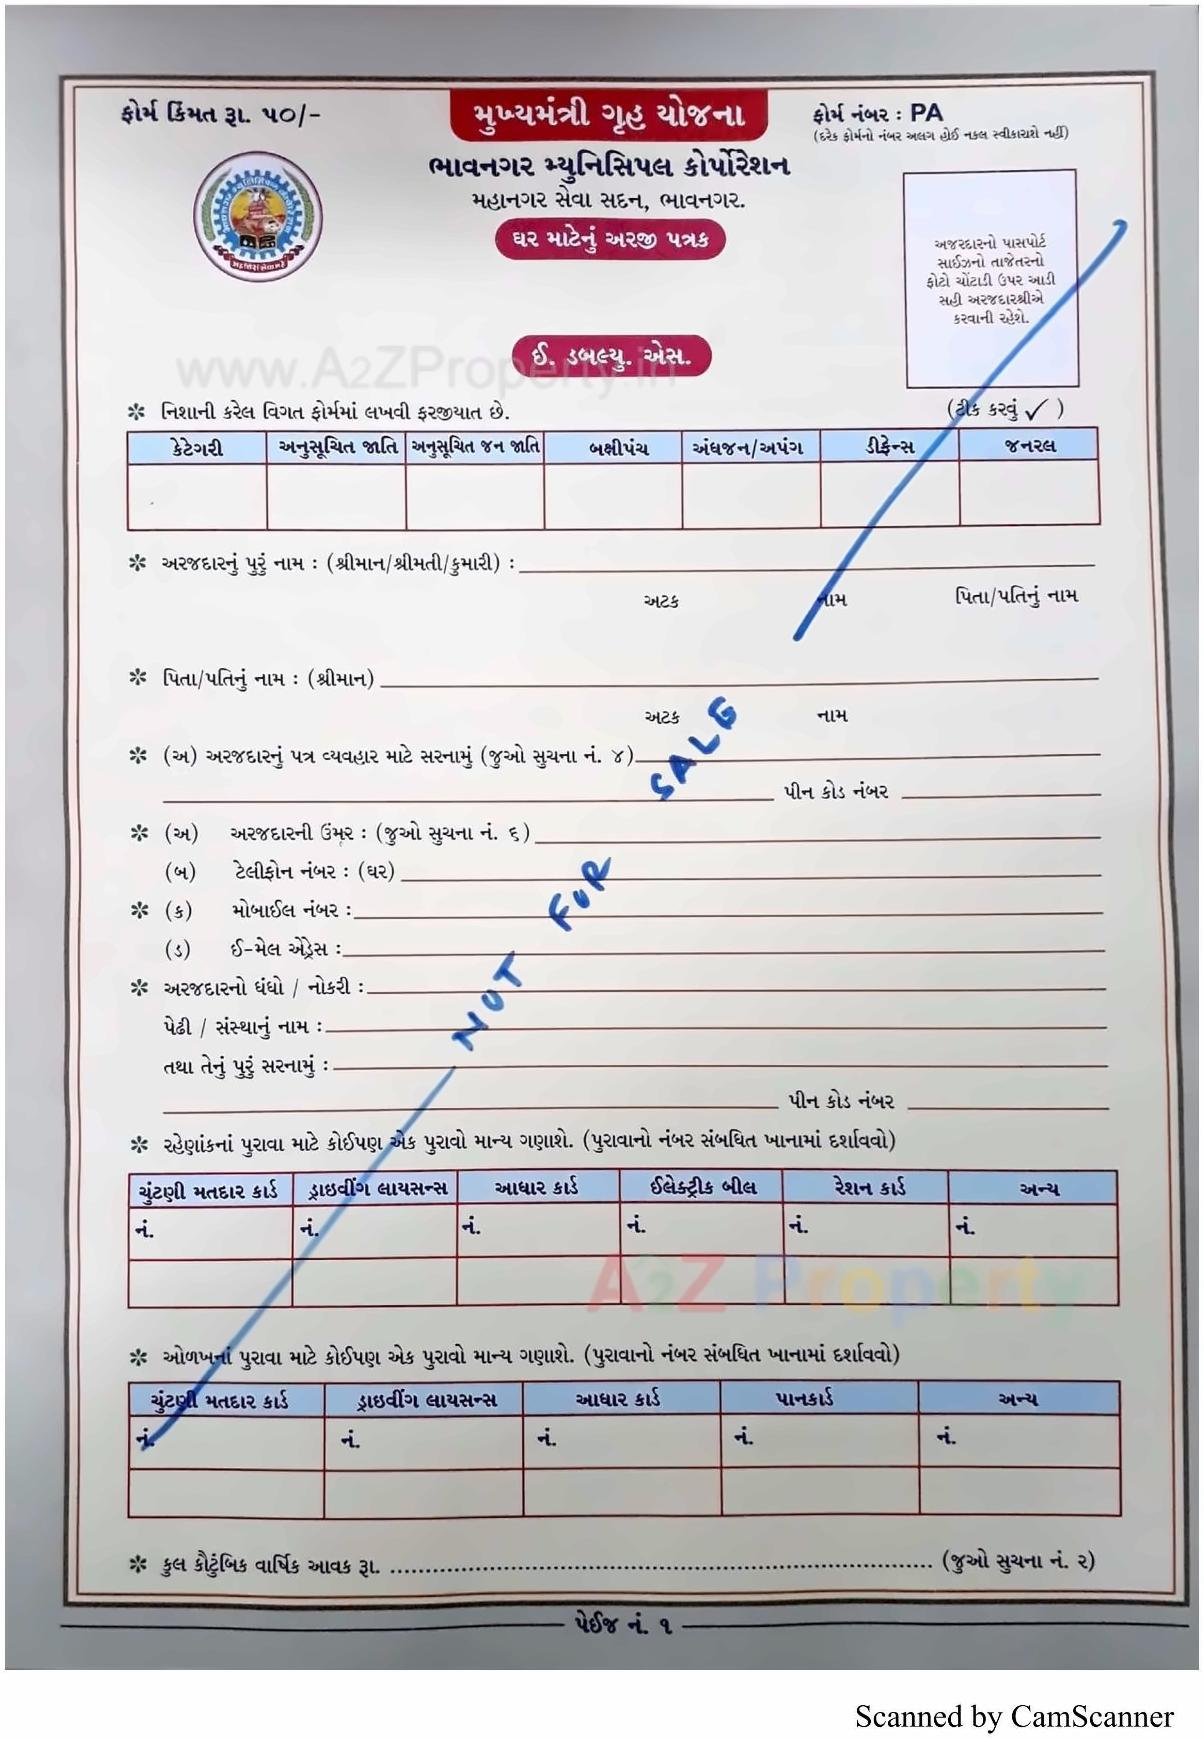 ફોર્મ કિંમત રૂા. ૫૦/-
મુખ્યમંત્રી ગૃહ યોજના
ફોર્મ નંબર : PA
(દરેક ફોર્મનો નંબર અલગ હોઈ નકલ સ્વીકારાશે નહીં)
ભાવનગર મ્યુનિસિપલ કોર્પોરેશન
મહાનગર સેવા સદન, ભાવનગર.
ઘર માટેનું અરજી પત્રક
અજરદારનો પાસપોર્ટ
સાઈઝનો તાજેતરનો
ફોટો ચોંટાડી ઉપર આડી
સહી અરજદારશ્રીએ
કરવાની રહેશે.
www.A2ZProperty.in
ઈ. ડબલ્યુ. એસ.
✻ નિશાની કરેલ વિગત ફોર્મમાં લખવી ફરજીયાત છે. (ટીક કરવું ✓ )
કેટેગરી અનુસૂચિત જાતિ અનુસૂચિત જન જાતિ બક્ષીપંચ અંધજન/અપંગ ડીફેન્સ જનરલ
✻ અરજદારનું પુરૂં નામ : (શ્રીમાન/શ્રીમતી/કુમારી) :
અટક નામ પિતા/પતિનું નામ
✻ પિતા/પતિનું નામ : (શ્રીમાન)
અટક નામ
✻ (અ) અરજદારનું પત્ર વ્યવહાર માટે સરનામું (જુઓ સુચના નં. ૪)
પીન કોડ નંબર
✻ (અ) અરજદારની ઉંમર : (જુઓ સુચના નં. ૬)
(બ) ટેલીફોન નંબર : (ઘર)
✻ (ક) મોબાઈલ નંબર :
(ડ) ઈ-મેલ એડ્રેસ :
✻ અરજદારનો ધંધો / નોકરી :
પેઢી / સંસ્થાનું નામ :
તથા તેનું પુરૂં સરનામું :
પીન કોડ નંબર
NOT FOR SALE
✻ રહેણાંકનાં પુરાવા માટે કોઈપણ એક પુરાવો માન્ય ગણાશે. (પુરાવાનો નંબર સંબધિત ખાનામાં દર્શાવવો)
ચુંટણી મતદાર કાર્ડ ડ્રાઇવીંગ લાયસન્સ આધાર કાર્ડ ઈલેક્ટ્રીક બીલ રેશન કાર્ડ અન્ય
નં. નં. નં. નં. નં. નં.
A2Z Property
✻ ઓળખનાં પુરાવા માટે કોઈપણ એક પુરાવો માન્ય ગણાશે. (પુરાવાનો નંબર સંબધિત ખાનામાં દર્શાવવો)
ચુંટણી મતદાર કાર્ડ ડ્રાઇવીંગ લાયસન્સ આધાર કાર્ડ પાનકાર્ડ અન્ય
નં. નં. નં. નં. નં.
✻ કુલ કૌટુંબિક વાર્ષિક આવક રૂા. ........................................ (જુઓ સુચના નં. ૨)
પેઈજ નં. ૧
Scanned by CamScanner